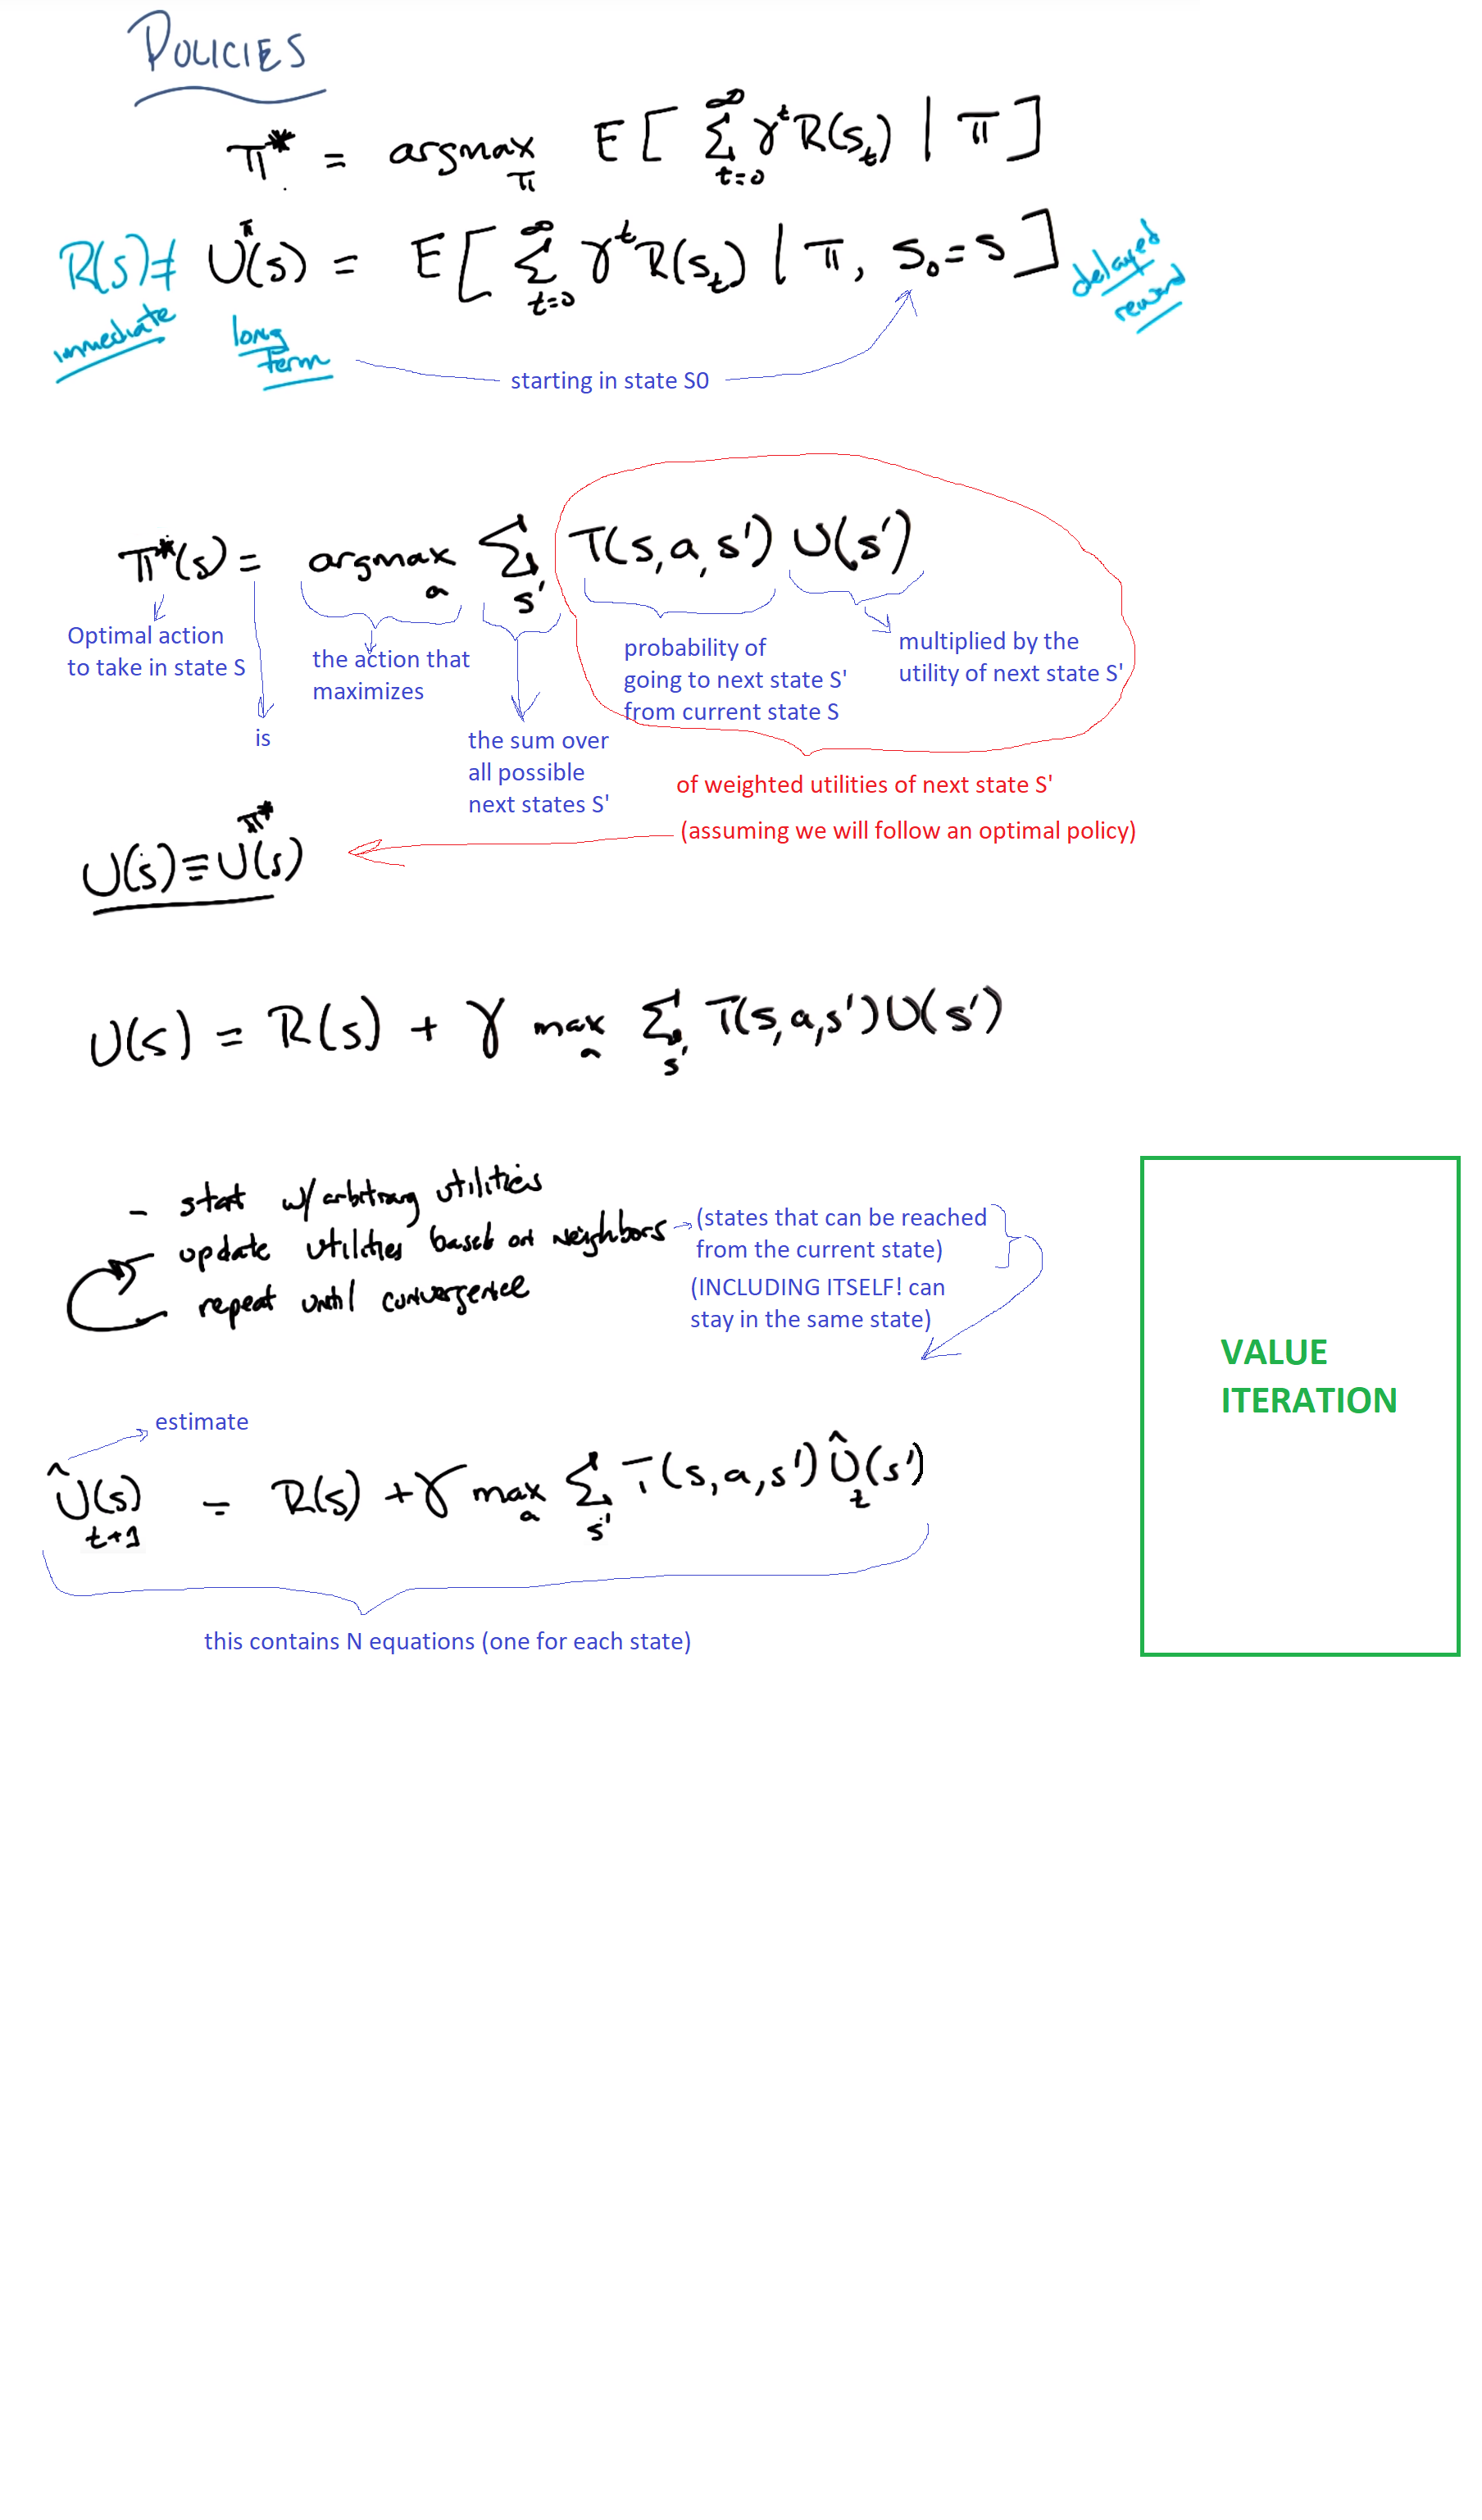 POLICIES
π* = argmax_π E[ Σ_{t=0}^∞ γ^t R(s_t) | π ]
R(s) ≠ U^π(s) = E[ Σ_{t=0}^∞ γ^t R(s_t) | π, s_0 = s ] delayed reward
immediate
long term
starting in state S0
π*(s) = argmax_a Σ_{s'} T(s,a,s') U(s')
Optimal action
to take in state S
is
the action that
maximizes
the sum over
all possible
next states S'
probability of
going to next state S'
from current state S
multiplied by the
utility of next state S'
of weighted utilities of next state S'
(assuming we will follow an optimal policy)
U(s) ≡ U^{π*}(s)
U(s) = R(s) + γ max_a Σ_{s'} T(s,a,s') U(s')
- stat w/ arbitrary utilities
- update utilities based on neighbors
(states that can be reached
from the current state)
(INCLUDING ITSELF! can
stay in the same state)
repeat until convergence
VALUE
ITERATION
estimate
Û_{t+1}(s) = R(s) + γ max_a Σ_{s'} T(s,a,s') Û_t(s')
this contains N equations (one for each state)